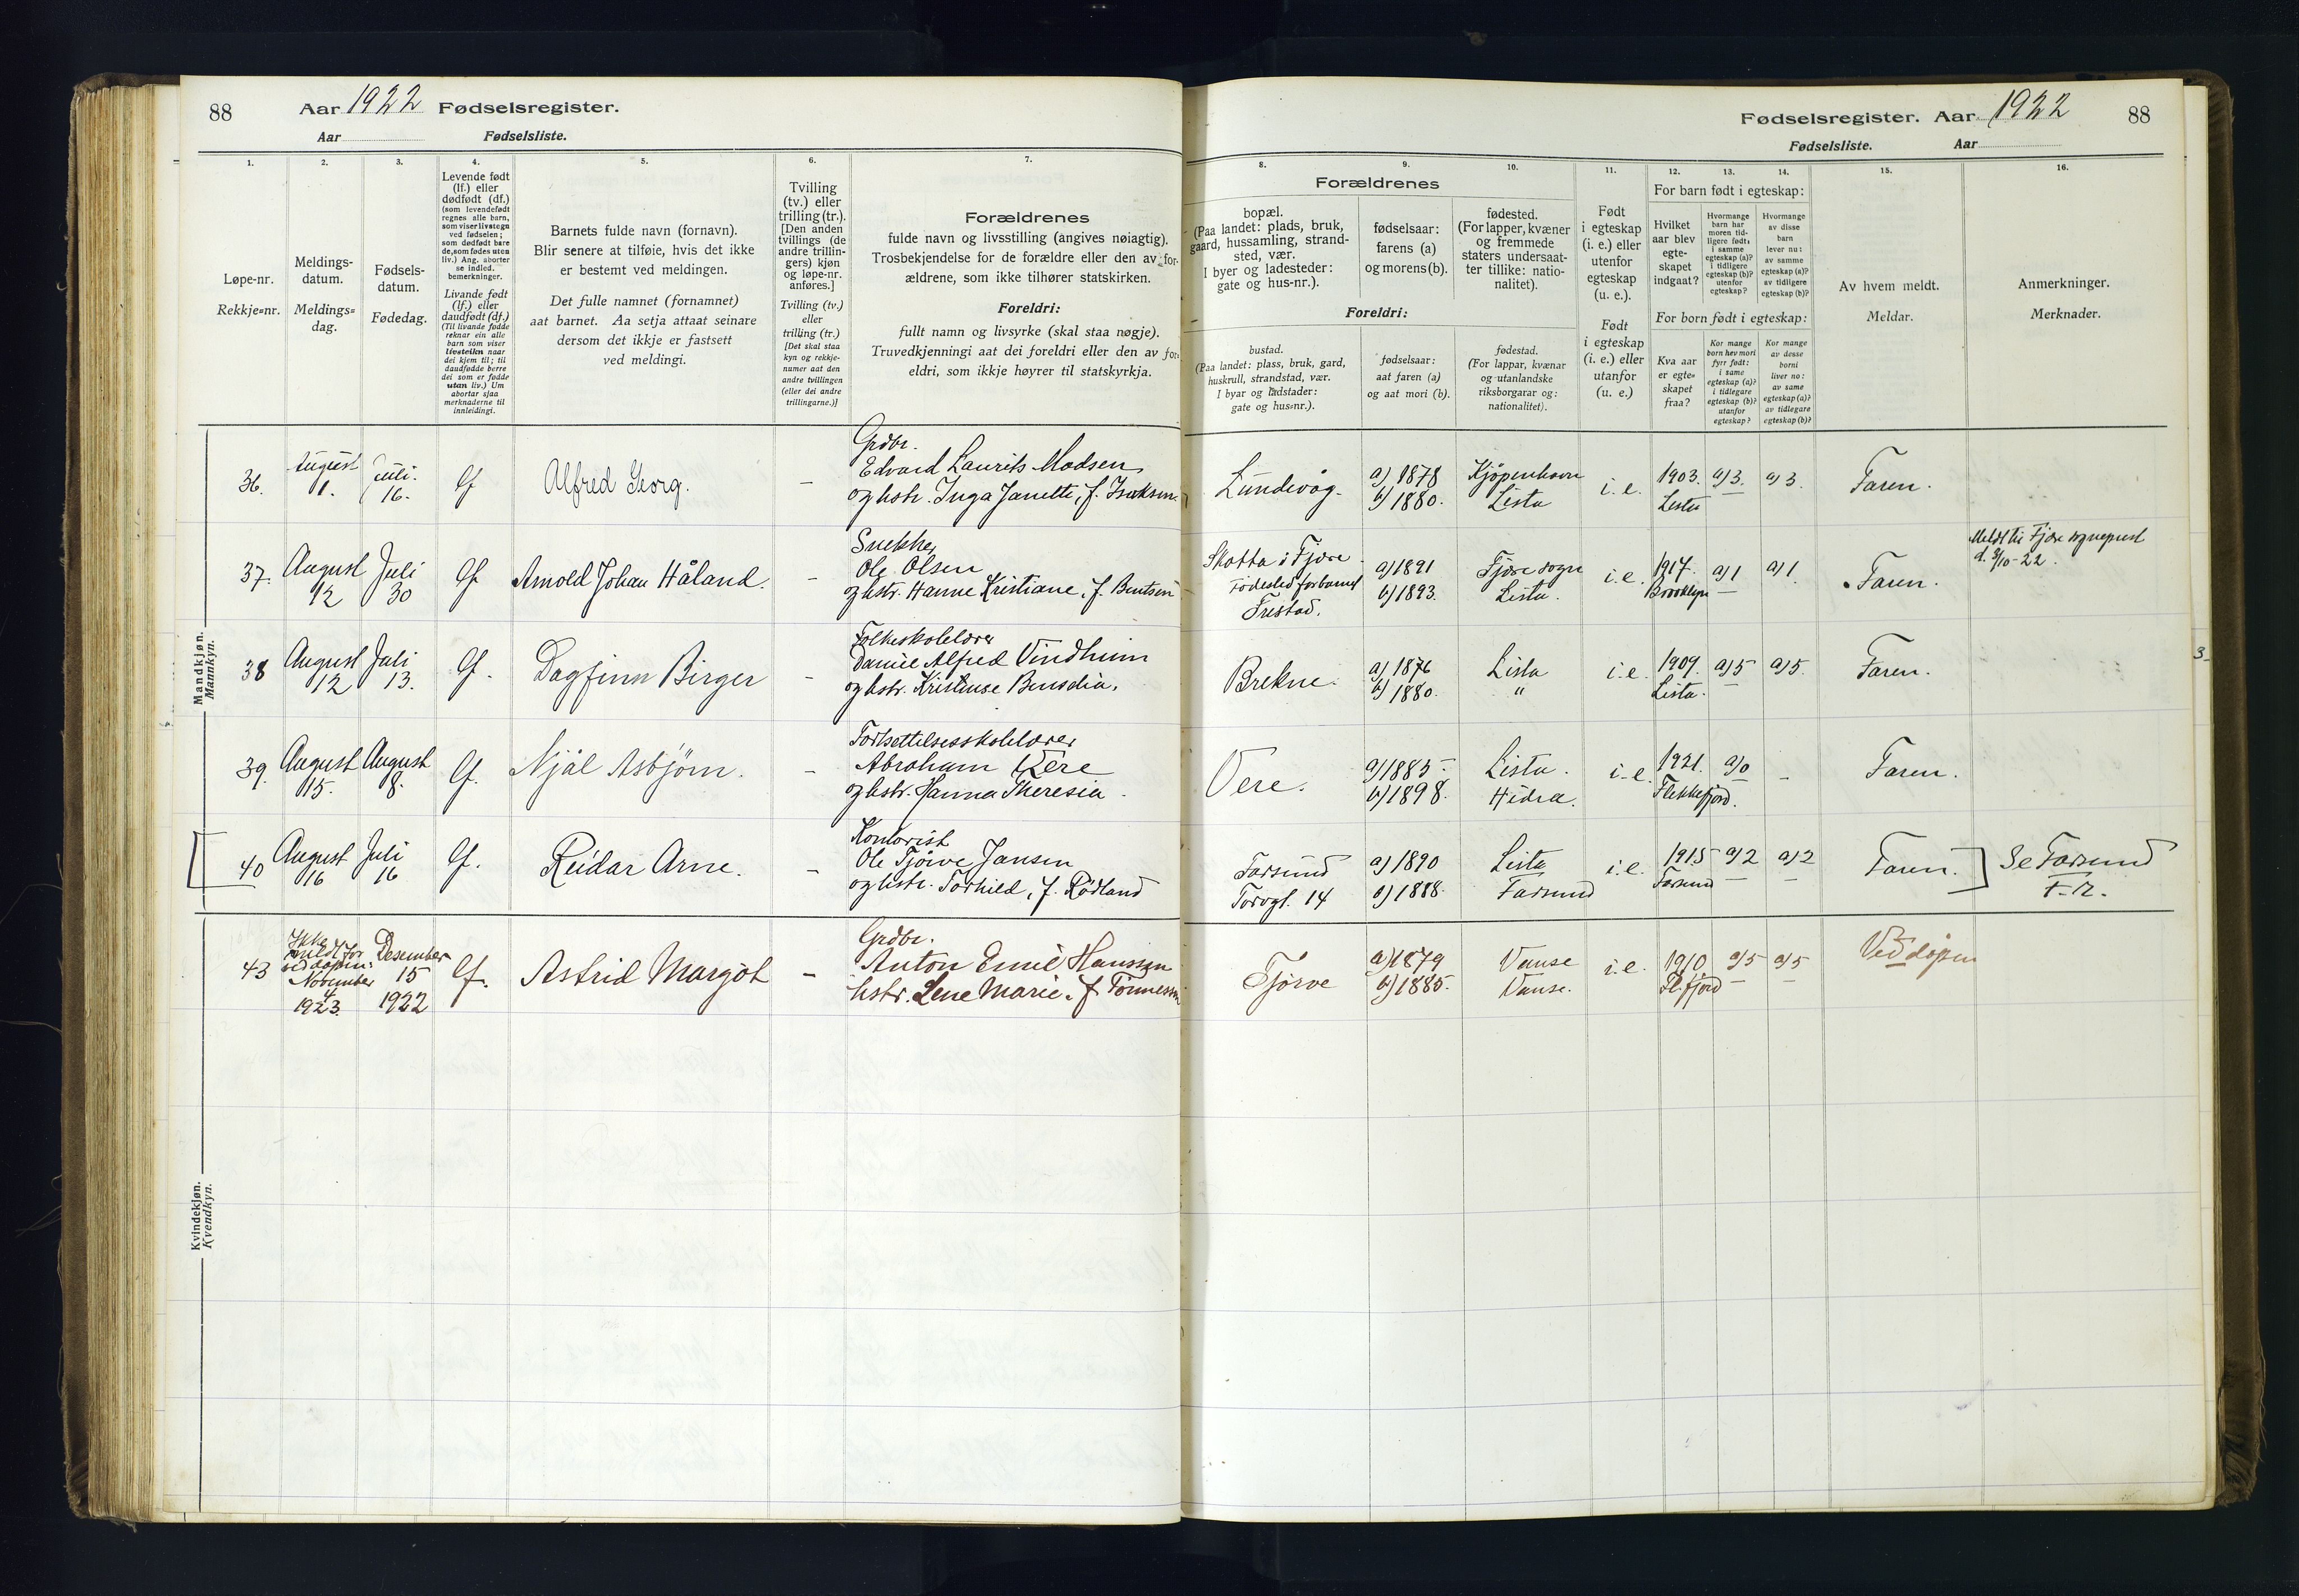 88
Aar 1922 Fødselsregister.
Aar Fødselsliste.
1.
2.
3.
4.
5.
6.
7.
Løpe-nr.
Rekkje=nr.
Meldings-
datum.
Meldings=
dag.
Fødsels-
datum.
Fødedag.
Levende født
(lf.) eller
dødfødt (df.)
(som levendefødt
regnes alle barn,
som viser livstegn
ved fødselen;
som dødfødt bare
de, som fødes uten
liv.) Ang. aborter
se indled.
bemerkninger.
Livande født
(lf.) eller
daudfødt (df.)
(Til livande fødde
reknar ein alle
barn som viser
livsteikn naar
dei kjem til; til
daudfødde berre
dei som er fødde
utan liv.) Um
abortar sjaa
merknaderne til
innleidingi.
Barnets fulde navn (fornavn).
Blir senere at tilføie, hvis det ikke
er bestemt ved meldingen.
Det fulle namnet (fornamnet)
aat barnet. Aa setja attaat seinare
dersom det ikkje er fastsett
ved meldingi.
Tvilling
(tv.) eller
trilling (tr.).
[Den anden
tvillings (de
andre trillin-
gers) kjøn
og løpe-nr.
anføres.]
Tvilling (tv.)
eller
trilling (tr.)
[Det skal staa
kyn og rekkje-
numer aat den
andre tvillingen
(eller dei andre
trillingarne.)]
Forældrenes
fulde navn og livsstilling (angives nøiagtig).
Trosbekjendelse for de forældre eller den av for-
ældrene, som ikke tilhører statskirken.
Foreldri:
fullt namn og livsyrke (skal staa nøgje).
Truvedkjenningi aat dei foreldri eller den av for-
eldri, som ikkje høyrer til statskyrkja.
Mandkjøn.
Mannkyn.
36. August 1. Juli 16. lf Alfred Georg. -
Grdbr.
Edvard Laurits Madsen
og hstr. Inga Janette, f. Isaksen
37. August 12 Juli 30 lf. Arnold Johan Håland. -
Snekker
Ole Olsen
og hstr. Hanne Kristiane, f. Bentsen
38 August 12 Juli 13. lf. Dagfinn Birger -
Folkeskolelærer
Daniel Alfred Vindheim
og hstr. Kristense Bensdia.
39. August 15. August 8. lf. Njål Asbjörn. -
Fortsettelsesskolelærer
Abraham Vere
og hstr. Hanna Theresia.
40 August 16 Juli 16 lf. Reidar Arne. -
Kontorist
Ole Tjörve Jansen
og hstr. Torhild, f. Rödland
Kvindekjøn.
Kvendkyn.
43 Ikke meldt før ved dåpen. November 4 1923. Desember 15 1922 lf. Astrid Margot -
Grdbr.
Anton Emil Hanssen
hstr. Lene Marie, f. Tönnessen
Fødselsregister. Aar 1922
88
Fødselsliste. Aar
8.
9.
10.
11.
12.
13.
14.
15.
16.
Forældrenes
bopæl.
(Paa landet: plads, bruk,
gaard, hussamling, strand-
sted, vær.
I byer og ladesteder:
gate og hus-nr.).
fødselsaar:
farens (a)
og morens (b).
fødested.
(For lapper, kvæner
og fremmede
staters undersaat-
ter tillike: natio-
nalitet).
Foreldri:
bustad.
(Paa landet: plass, bruk, gard,
huskrull, strandstad, vær.
I byar og ladstader:
gate og hus=nr.).
fødselsaar:
aat faren (a)
og aat mori (b).
fødestad.
(For lappar, kvænar
og utanlandske
riksborgarar og:
nationalitet).
Født
i egteskap
(i. e.) eller
utenfor
egteskap
(u. e.).
Født
i egteskap
(i. e.) eller
utanfor
(u. e.)
For barn født i egteskap:
Hvilket
aar blev
egte-
skapet
indgaat?
Hvormange
barn har
moren tid-
ligere født:
i samme
egteskap (a)?
i tidligere
egteskap (b)?
utenfor
egteskap?
Hvormange
av disse
barn
lever nu:
av samme
egteskap (a)?
av tidligere
egteskap (b)?
For born født i egteskap:
Kva aar
er egte=
skapet
fraa?
Kor mange
born hev mori
fyrr født:
i same
egteskap (a)?
i tidlegare
egteskap (b)?
utanfor
egteskap?
Kor mange
av desse
borni
liver no:
av same
egteskap (a)?
av tidlegare
egteskap (b)?
Av hvem meldt.
Meldar.
Anmerkninger.
Merknader.
Lundevåg. a) 1878 b) 1880. Kjöpenhavn Lista i. e. 1903. Lista a) 3. a) 3. Faren.
Skotta i Fjære Födested for barnet Frestad. a) 1891 b) 1893. Fjære sogn Lista. i. e. 1917. Brooklyn a) 1 a) 1. Faren. Meldt til Fjære sogneprest d. 3/10-22.
Brekne. a) 1876 b) 1880. Lista " i. e. 1909. Lista. a) 5 a) 5. Faren.
Vere. a) 1885 b) 1898. Lista. Hidra. i. e. 1921. Flekkefjord. a) 0 - Faren.
Farsund Torvgt. 14 a) 1890 b) 1888. Lista Farsund i. e. 1915 Farsund a) 2 a) 2 Faren. Se Farsund
Tjörve a) 1879 b) 1885. Vanse Vanse. i. e. 1910 Fl.fjord a) 5 a) 5 Ved dåpen
3